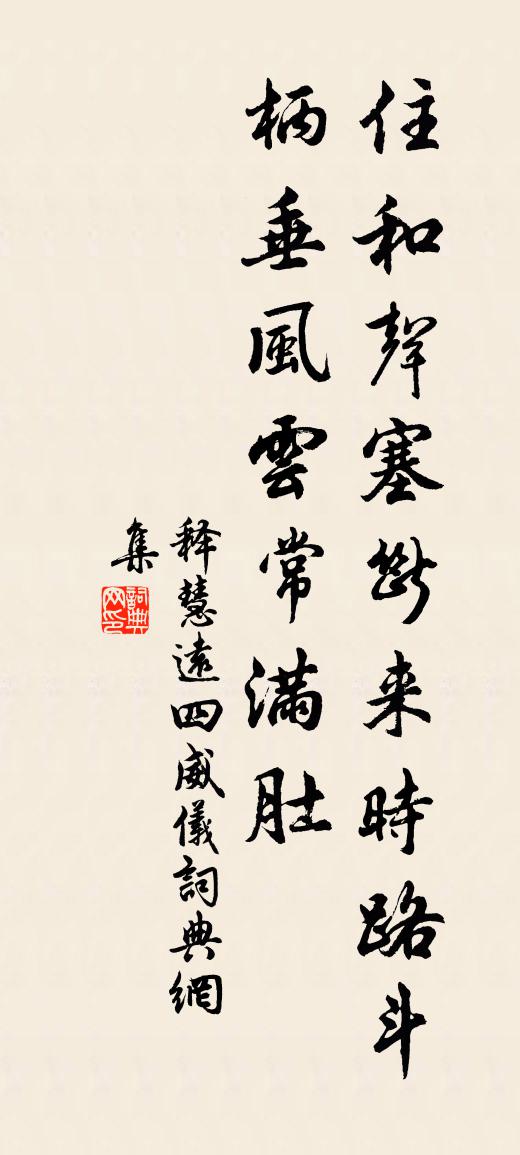 住和聲塞断来時路斗
柄垂風雲常滿肚
释慧遠四威儀詞典網
集
詞典
网印